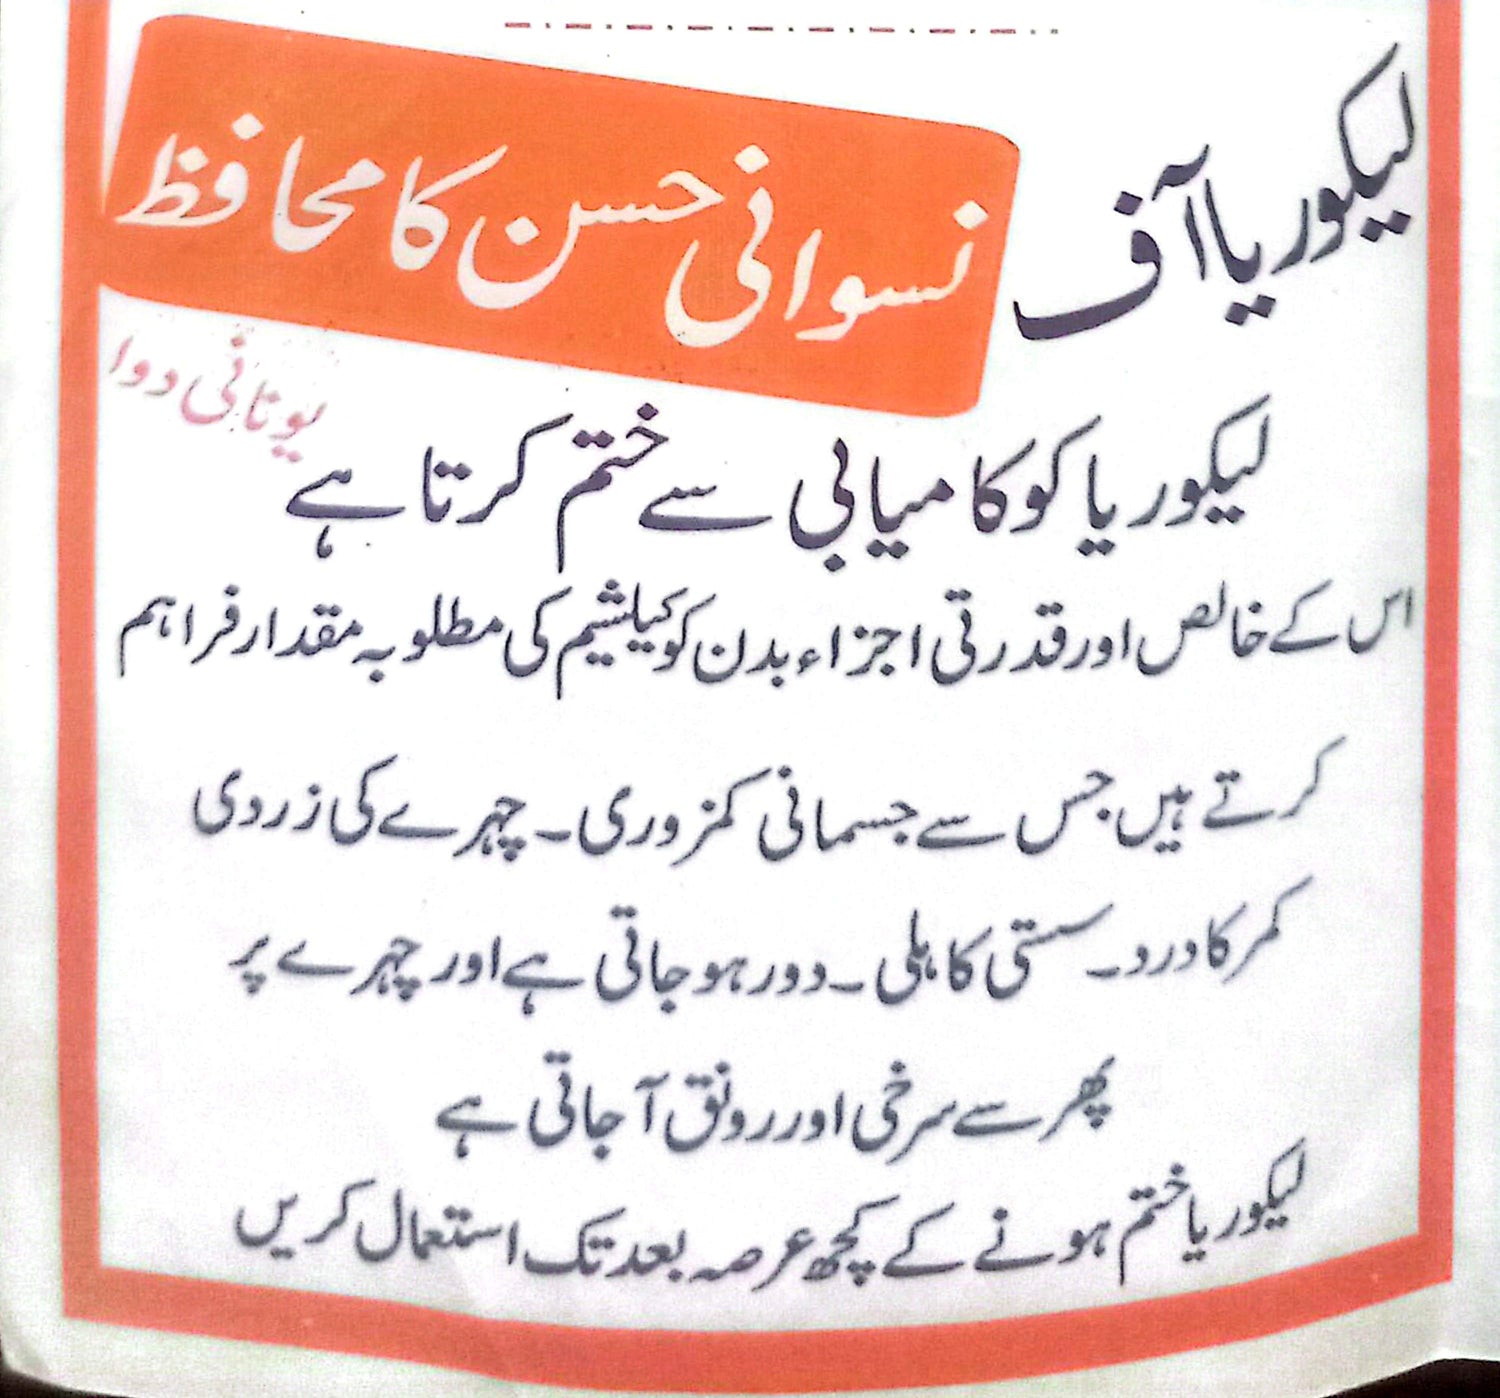 لیکوریا آف نسوانی حسن کا محافظ
یونانی دوا
لیکوریا کو کامیابی سے ختم کرتا ہے
اس کے خالص اور قدرتی اجزاء بدن کو کیلشیم کی مطلوبہ مقدار فراہم
کرتے ہیں جس سے جسمانی کمزوری ۔ چہرے کی زردی
کمر کا درد ۔ سستی کاہلی ۔ دور ہو جاتی ہے اور چہرے پر
پھر سے سرخی اور رونق آ جاتی ہے
لیکوریا ختم ہونے کے کچھ عرصہ بعد تک استعمال کریں